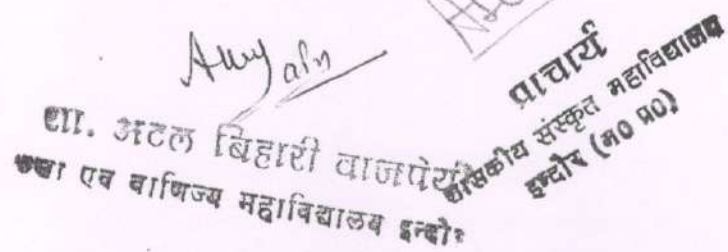 शा. अटल बिहारी वाजपेयी
कला एव वाणिज्य महाविद्यालय इन्दौर
प्राचार्य
शासकीय संस्कृत महाविद्यालय
इन्दौर (म0 प्र0)